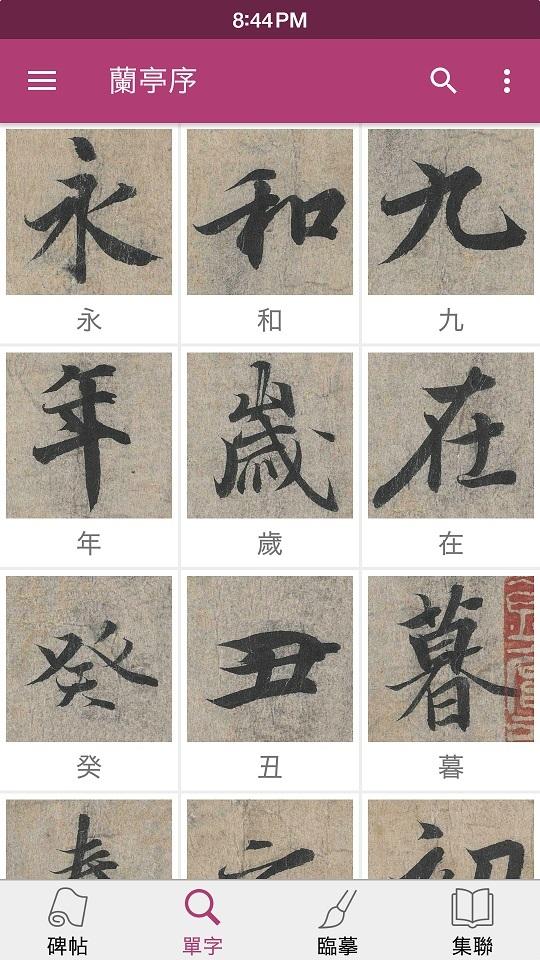 8:44PM
蘭亭序
永 和 九
永 和 九
年 歲 在
年 歲 在
癸 丑 暮
癸 丑 暮
春 初
碑帖 單字 臨摹 集聯